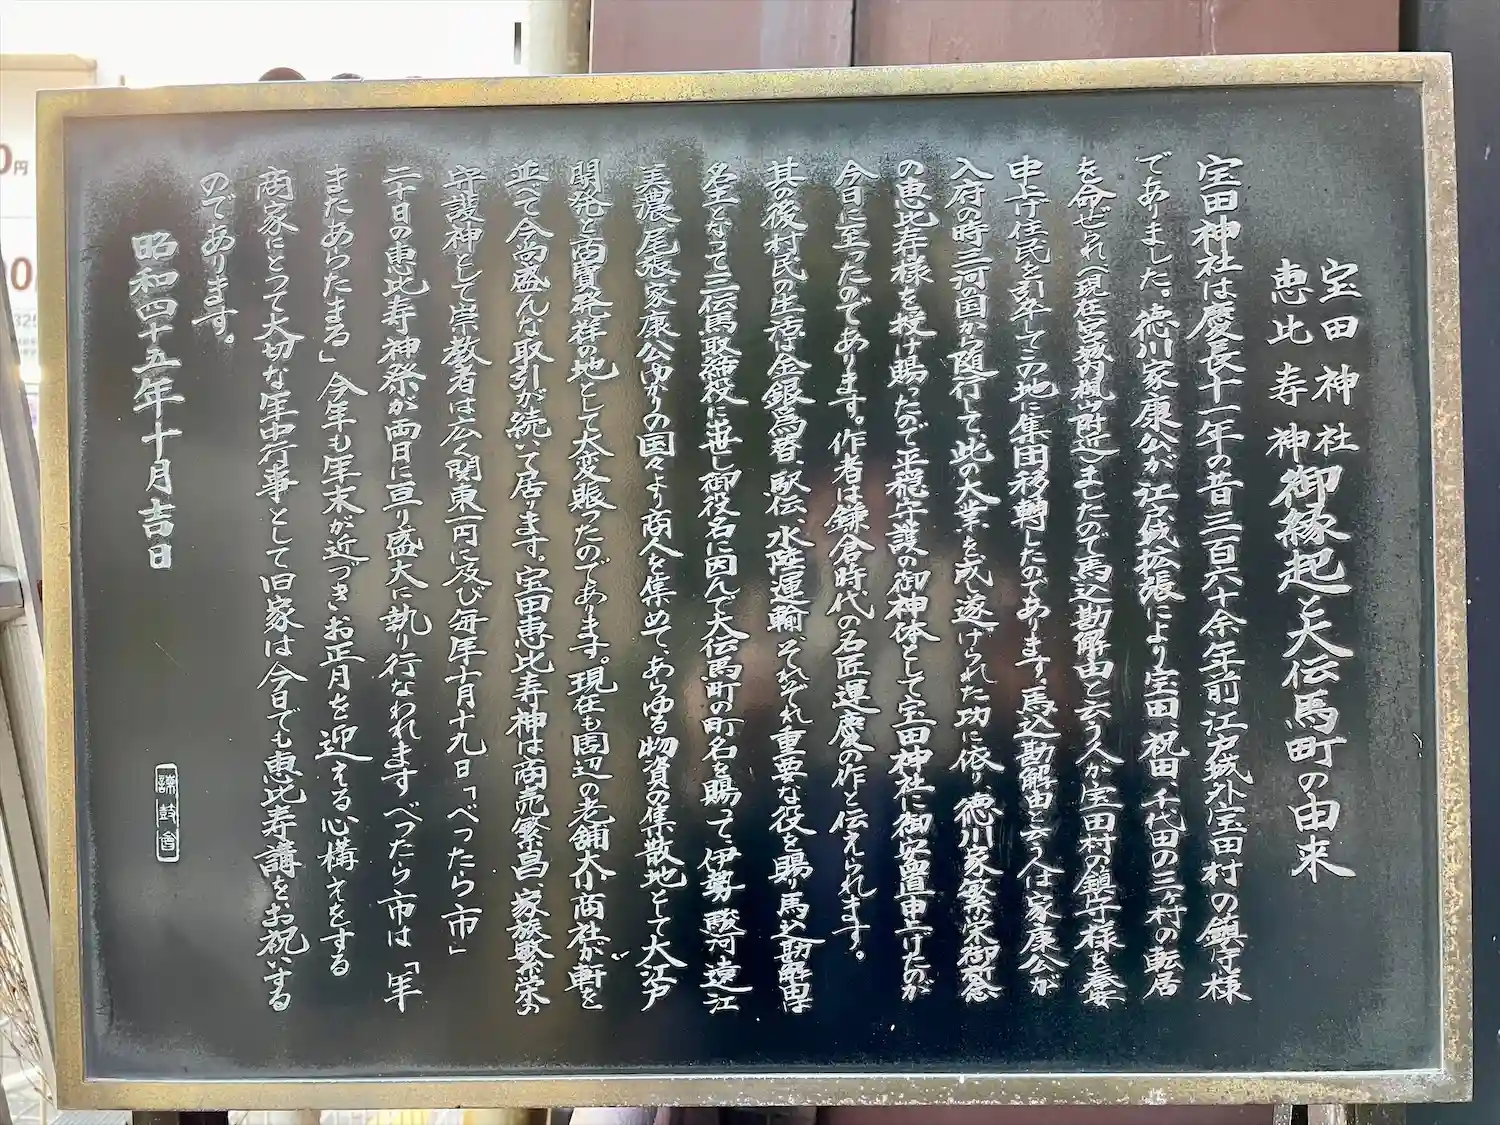 宝田神社
恵比寿神
御縁起と大伝馬町の由来
宝田神社は慶長十一年の昔三百六十余年前江戸城外宝田村の鎮守様
でありました。徳川家康公が江戸城拡張により宝田、祝田、千代田の三ヶ村の転居
を命ぜられ(現在宮城内楓山附近)ましたので馬込勘解由と云う人が宝田村の鎮守様を奉安
申上げ住民を引率してこの地に集団移轉したのであります。馬込勘解由と云う人は家康公が
入府の時三河の国から随行して、此の大業を成し遂げられた功に依り、徳川家繁栄御祈念
の恵比寿様を授け賜ったので平穏守護の御神体として宝田神社に御安置申上げたのが
今日に至ったのであります。作者は鎌倉時代の名匠運慶の作と伝えられます。
其の後村民の生活は金銀為替、駅伝、水陸運輸、それぞれ重要な役を賜り馬込勘解由は
名主となって三伝馬取締役に出世し御役名に因んで大伝馬町の町名を賜って、伊勢、駿河、遠江
美濃、尾張、家康公ゆかりの国々より商人を集めて、あらゆる物資の集散地として大江戸
開発と商賣発祥の地として大変賑ったのであります。現在も周辺の老舗大小商社が軒を
並べて今尚盛んな取引が続いて居ります。宝田恵比寿神は商売繁昌、家族繁栄の
守護神として崇教者は広く関東一円に及び毎年十月十九日「べったら市」
二十日の恵比寿神祭が両日に亘り盛大に執り行なわれますべったら市は「年
またあらたまる」今年も年末が近づきお正月を迎える心構えをする
商家にとって大切な年中行事として旧家は今日でも恵比寿講をお祝いする
のであります。
昭和四十五年十月吉日
諫鼓會
0円